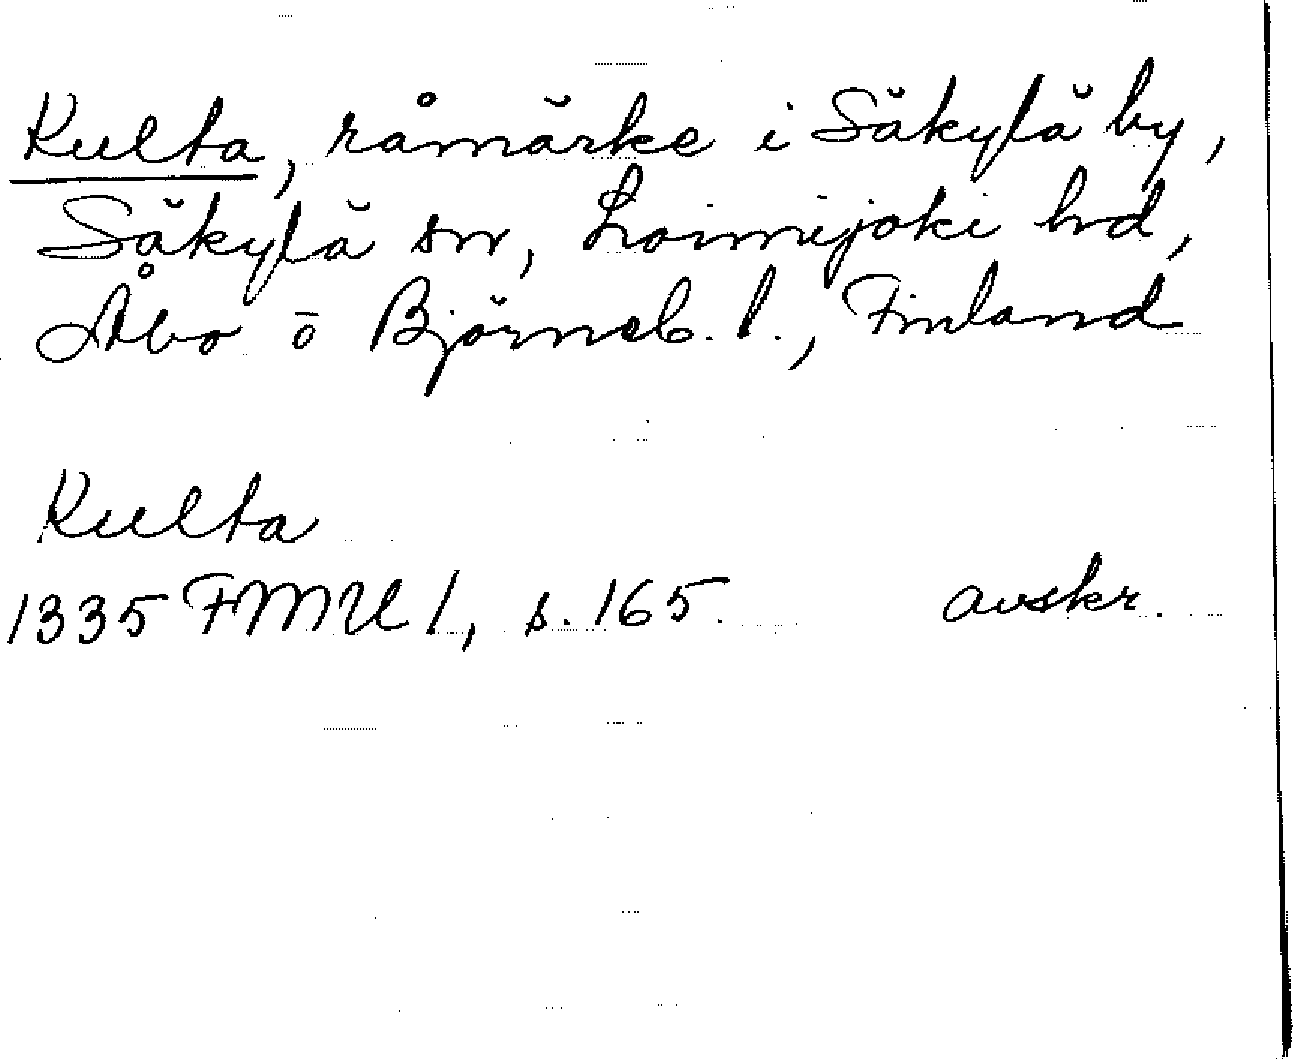 Kulta, råmärke i Säkylä by,
Säkylä sn, Loimijoki hd,
Åbo o Björneb. l., Finland
Kulta
1335 FMU I, s. 165. avskr.